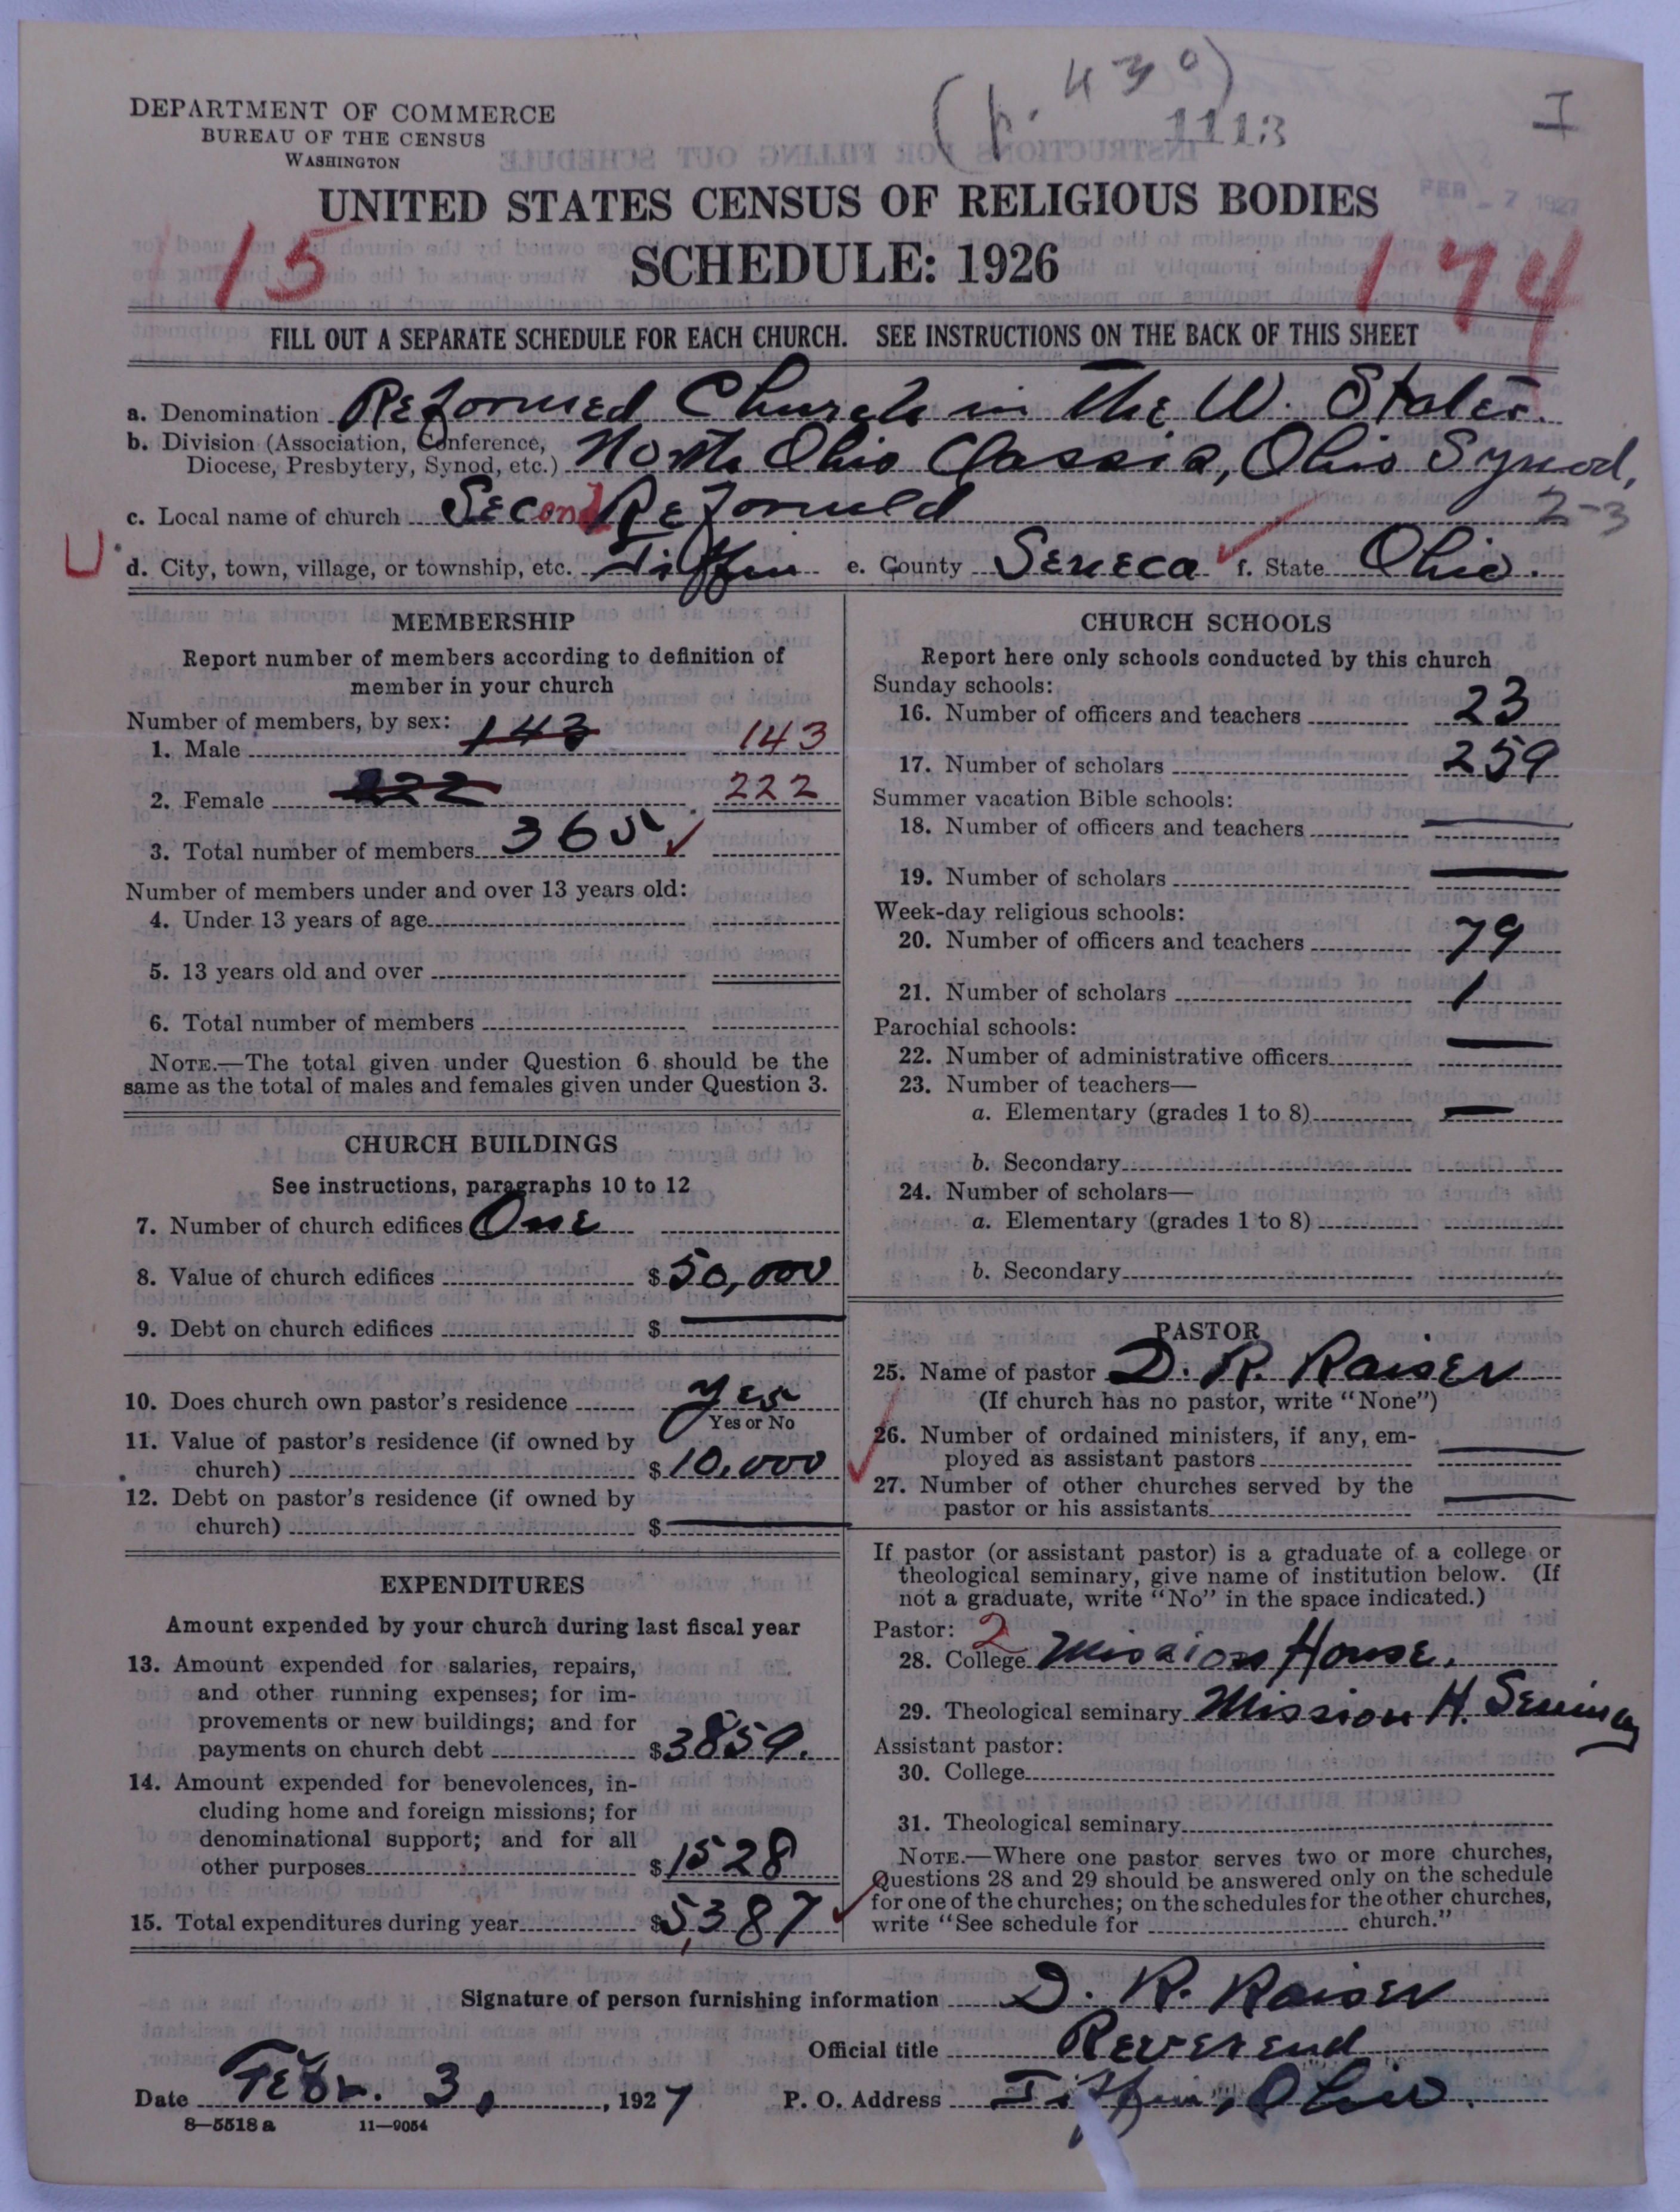 (p. 430)
1113
I
DEPARTMENT OF COMMERCE
BUREAU OF THE CENSUS
WASHINGTON
FEB - 7 1927
UNITED STATES CENSUS OF RELIGIOUS BODIES
SCHEDULE: 1926
15
174
FILL OUT A SEPARATE SCHEDULE FOR EACH CHURCH. SEE INSTRUCTIONS ON THE BACK OF THIS SHEET
a. Denomination Reformed Church in the U. States.
b. Division (Association, Conference,
Diocese, Presbytery, Synod, etc.) North Ohio Classis, Ohio Synod,
c. Local name of church Second Reformed
2-3
U d. City, town, village, or township, etc. Tiffin e. County Seneca f. State Ohio.
MEMBERSHIP
Report number of members according to definition of
member in your church
Number of members, by sex:
1. Male 143 143
2. Female 222 222
3. Total number of members 365
Number of members under and over 13 years old:
4. Under 13 years of age
5. 13 years old and over
6. Total number of members
NOTE.—The total given under Question 6 should be the
same as the total of males and females given under Question 3.
CHURCH BUILDINGS
See instructions, paragraphs 10 to 12
7. Number of church edifices One
8. Value of church edifices $50,000
9. Debt on church edifices $
10. Does church own pastor's residence Yes
Yes or No
11. Value of pastor's residence (if owned by
church) $10,000
12. Debt on pastor's residence (if owned by
church) $
EXPENDITURES
Amount expended by your church during last fiscal year
13. Amount expended for salaries, repairs,
and other running expenses; for im-
provements or new buildings; and for
payments on church debt $3859.
14. Amount expended for benevolences, in-
cluding home and foreign missions; for
denominational support; and for all
other purposes $1528
15. Total expenditures during year $5,387
CHURCH SCHOOLS
Report here only schools conducted by this church
Sunday schools:
16. Number of officers and teachers 23
17. Number of scholars 259
Summer vacation Bible schools:
18. Number of officers and teachers
19. Number of scholars
Week-day religious schools:
20. Number of officers and teachers 79
21. Number of scholars 1
Parochial schools:
22. Number of administrative officers
23. Number of teachers—
a. Elementary (grades 1 to 8)
b. Secondary
24. Number of scholars—
a. Elementary (grades 1 to 8)
b. Secondary
PASTOR
25. Name of pastor D. R. Raiser
(If church has no pastor, write "None")
26. Number of ordained ministers, if any, em-
ployed as assistant pastors
27. Number of other churches served by the
pastor or his assistants
If pastor (or assistant pastor) is a graduate of a college or
theological seminary, give name of institution below. (If
not a graduate, write "No" in the space indicated.)
Pastor: 2
28. College Mission House.
29. Theological seminary Mission H. Seminary
Assistant pastor:
30. College
31. Theological seminary
NOTE.—Where one pastor serves two or more churches,
Questions 28 and 29 should be answered only on the schedule
for one of the churches; on the schedules for the other churches,
write "See schedule for church."
Signature of person furnishing information D. R. Raiser
Official title Reverend
Date Febr. 3, 1927 P. O. Address Tiffin, Ohio.
8—5518 a 11—9054